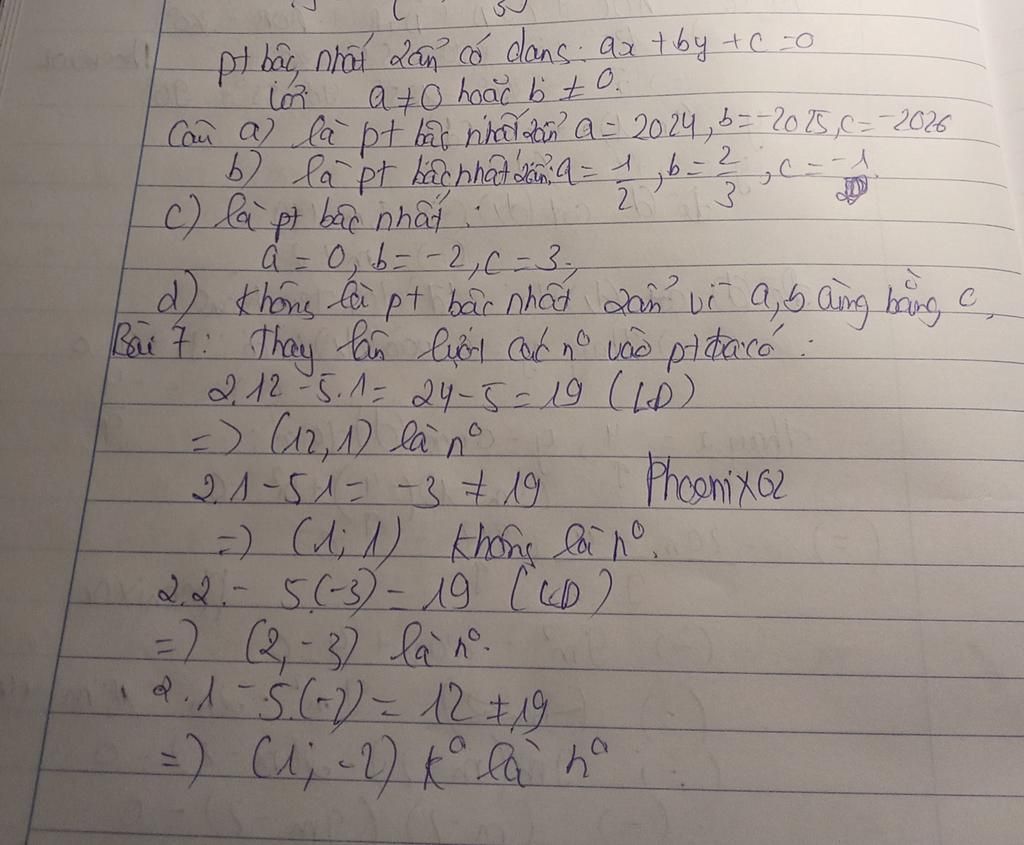 pt bậc nhất 2ẩn có dạng: ax + by + c = 0
với a ≠ 0 hoặc b ≠ 0.
Câu a) là pt bậc nhất 2ẩn a = 2024, b = -2025, c = -2026
b) là pt bậc nhất 2ẩn: a = 1/2, b = 2/3, c = -1
c) là pt bậc nhất:
a = 0, b = -2, c = 3,
d) không là pt bậc nhất 2ẩn vì a, b bằng c,
Bài 7: Thay lần lượt các n° vào pt ta có:
2.12 - 5.1 = 24 - 5 = 19 (LĐ)
=> (12, 1) là n°
2.1 - 5 1 = -3 ≠ 19 PhoeniX62
=> (1; 1) không là n°.
2.2. - 5.(-3) = 19 (LĐ)
=> (2, -3) là n°.
2.1 - 5.(-2) = 12 ≠ 19
=> (1; -2) k° là n°